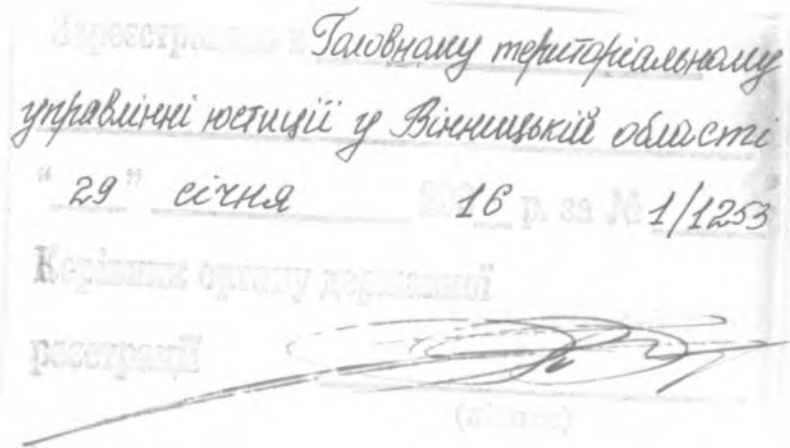 Зареєстровано в Головному територіальному
управлінні юстиції у Вінницькій області
" 29 " січня 2016 р. за № 1/1253
Керівник органу державної
реєстрації
(підпис)